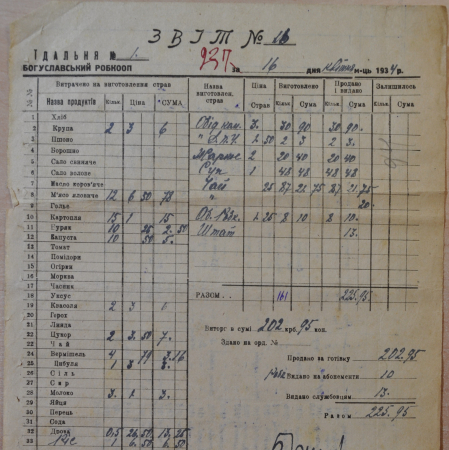 ЗВІТ № 16
ЇДАЛЬНЯ № 1.
237.
за 16 дня квітня м-ць 1934 р.
БОГУСЛАВСЬКИЙ РОБКООП
Витрачено на виготовлення страв
Назва виготовлен. страв
Ціна Страв
Виготовлено
Продано і видано
Залишилось
№ №
Назва продуктів
Кільк.
Ціна
СУМА
Кільк.
Сума
Кільк.
Сума
Кільк.
Сума
1 Хліб
2 Крупа 2 3 6 Обід ком. 3. 30 90 30 90.
3 Пшоно 1 50 2 3 2 3.
4 Борошно 2 20 40 20 40
5 Сало свиняче Суп 1 48 48 48 48
6 Сало волове
7 Масло коров'яче Чай 25 87 21 75 87 21.75
8 М'ясо яловиче 12 6 50 78 " 20.
9 Гольє
10 Картопля 15 1 15 1 25 8 10 8 10.
11 Буряк 10 25 2. 50 Штат 13.
12 Капуста 10 50 5.
13 Томат
14 Помідори
15 Огірки
16 Морква
17 Часник
18 Уксус
РАЗОМ . . 161 225.95
19 Квасоля 2 3 6
20 Горох
21 Лянда
22 Цукор 2 3.50 7.
Виторг в сумі 202 крб. 95 коп.
23 Чай
Здано на орд. №
24 Вермішель 4 79 3.16
Продано за готівку 202.95
25 Цибуля 1 3 3.
26 Сіль
Видано на абонементи 10
27 Сир
28 Молоко 3. 1 3.
Видано службовцям 13.
29 Яйця
Разом 225.95
30 Перець
31 Сода
32 Дрова 0,5 26,50 13,25
33 1 6.50 6.50